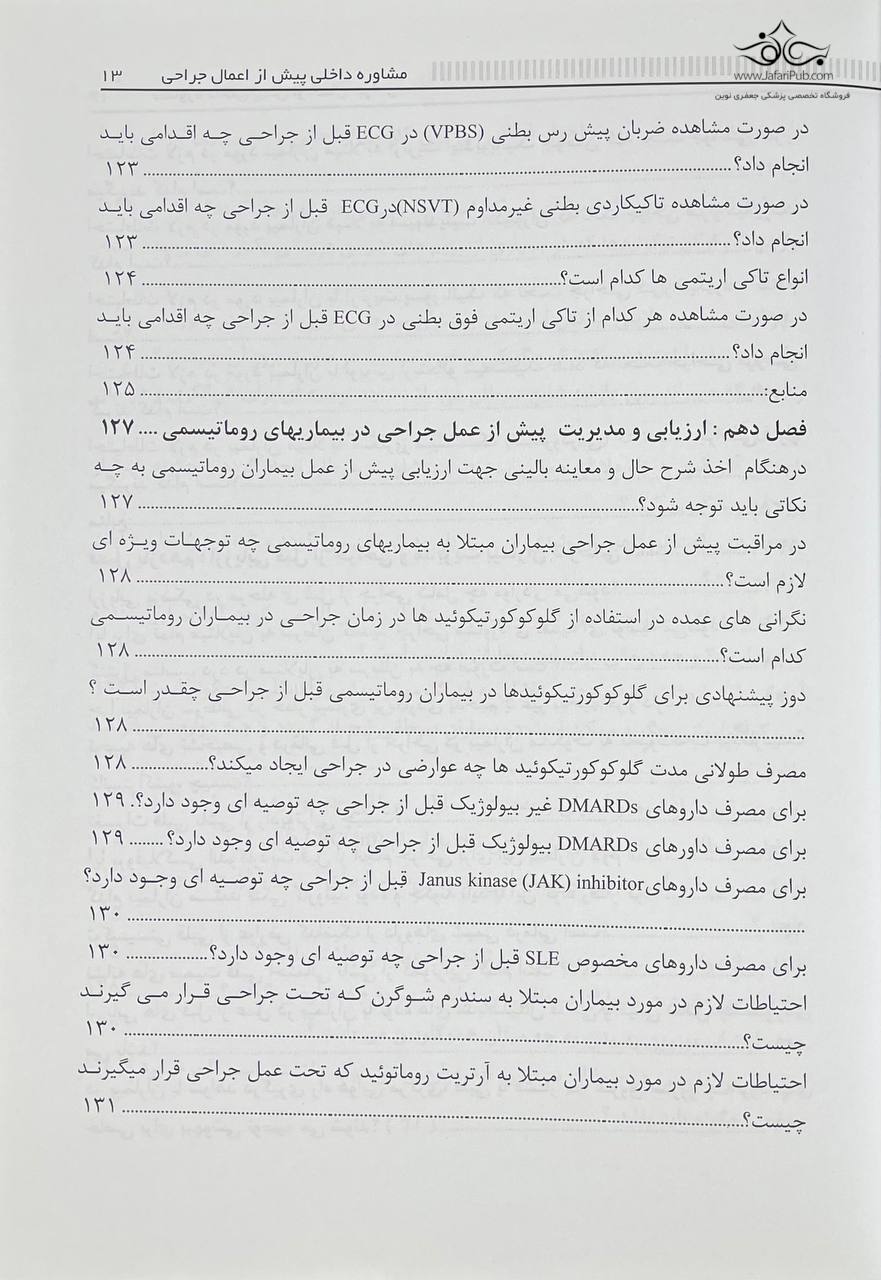 مشاوره داخلی پیش از اعمال جراحی ۱۳
www.JafariPub.com
فروشگاه تخصصی پزشکی جعفری نوین
در صورت مشاهده ضربان پیش رس بطنی (VPBS) در ECG قبل از جراحی چه اقدامی باید
انجام داد؟ ۱۲۳
در صورت مشاهده تاکیکاردی بطنی غیرمداوم (NSVT)درECG قبل از جراحی چه اقدامی باید
انجام داد؟ ۱۲۳
انواع تاکی اریتمی ها کدام است؟ ۱۲۴
در صورت مشاهده هر کدام از تاکی اریتمی فوق بطنی در ECG قبل از جراحی چه اقدامی باید
انجام داد؟ ۱۲۴
منابع: ۱۲۵
فصل دهم : ارزیابی و مدیریت پیش از عمل جراحی در بیماریهای روماتیسمی .... ۱۲۷
درهنگام اخذ شرح حال و معاینه بالینی جهت ارزیابی پیش از عمل بیماران روماتیسمی به چه
نکاتی باید توجه شود؟ ۱۲۷
در مراقبت پیش از عمل جراحی بیماران مبتلا به بیماریهای روماتیسمی چه توجهات ویژه ای
لازم است؟ ۱۲۸
نگرانی های عمده در استفاده از گلوکوکورتیکوئید ها در زمان جراحی در بیماران روماتیسمی
کدام است؟ ۱۲۸
دوز پیشنهادی برای گلوکوکورتیکوئیدها در بیماران روماتیسمی قبل از جراحی چقدر است ؟
۱۲۸
مصرف طولانی مدت گلوکوکورتیکوئید ها چه عوارضی در جراحی ایجاد میکند؟ ۱۲۸
برای مصرف داروهای DMARDs غیر بیولوژیک قبل از جراحی چه توصیه ای وجود دارد؟. ۱۲۹
برای مصرف داورهای DMARDs بیولوژیک قبل از جراحی چه توصیه ای وجود دارد؟........ ۱۲۹
برای مصرف داروهایJanus kinase (JAK) inhibitor قبل از جراحی چه توصیه ای وجود دارد؟
۱۳۰
برای مصرف داروهای مخصوص SLE قبل از جراحی چه توصیه ای وجود دارد؟ ۱۳۰
احتیاطات لازم در مورد بیماران مبتلا به سندرم شوگرن که تحت جراحی قرار می گیرند
چیست؟ ۱۳۰
احتیاطات لازم در مورد بیماران مبتلا به آرتریت روماتوئید که تحت عمل جراحی قرار میگیرند
چیست؟ ۱۳۱